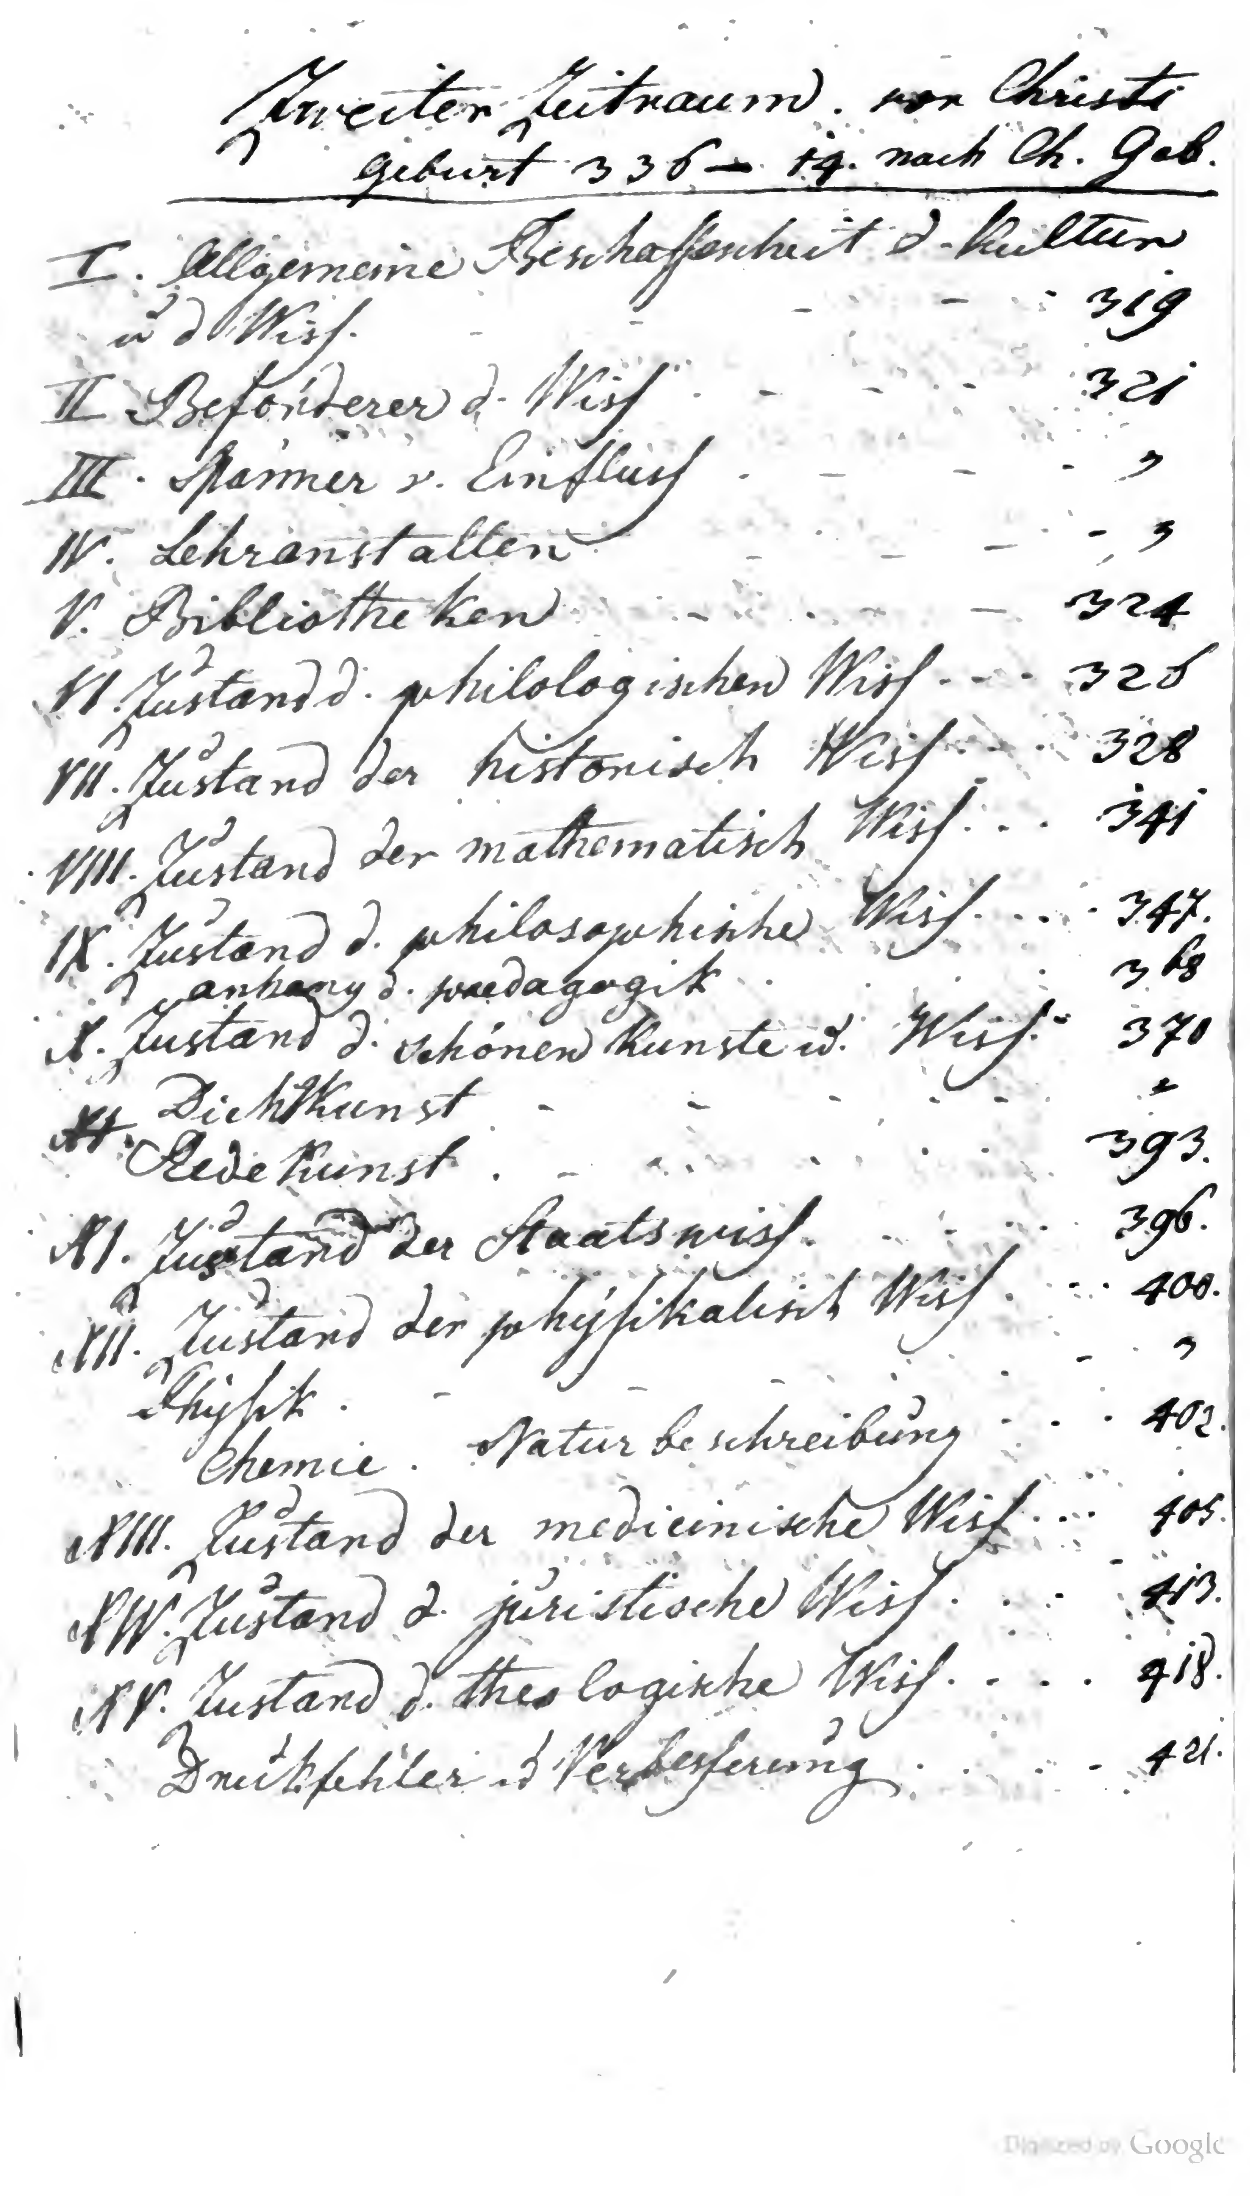 Zweiter Zeitraum. vor Christi
geburt 336 – 14. nach Ch. Geb.
I. Allgemeine Beschaffenheit d. Kultur
u d Wiss. - - - - 319
II Beförderer d. Wiss - - - 321
III. Männer v. Einfluss . - - - "
IV. Lehranstalten - - - - "
V. Bibliotheken - - - 324
VI. Zustand d. philologischen Wiss . - - . 326
VII. Zustand der historisch Wiss . - - . 328
VIII. Zustand der mathematisch Wiss . . . 341
IX. Zustand d. philosophische Wiss . . . . 347.
anhang d. paedagogik . . 368
X. Zustand d. schönen Kunste u. Wiss. - 370
Dichtkunst - - - - - "
XI. Redekunst . - . . . . 393.
XI. Zustand der Staatswiss. . - . . 396.
XII. Zustand der physikalisch Wiss . . - . . 400.
Physik . - - - - . "
Chemie . Naturbeschreibung . . - . 402.
XIII. Zustand der medicinische Wiss . . . 405.
XIV. Zustand d. juristische Wiss . . . - 413.
XV. Zustand d. theologische Wiss . - . . . 418.
Druckfehler u Verbesserung . . . . - 421.
Digitized by Google